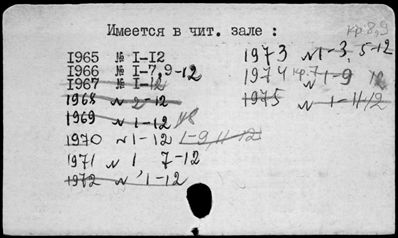 Имеется в чит. зале :
кр. 8,9
1965 № I-I2
1966 № I-7, 9-12
1967 № I-12
1968 № 2-12
1969 № 1-12 №8
1970 № 1-12 1-9, 11-12
1971 № 1 7-12
1972 № 1-12
1973 № 1-3, 5-12
1974 кр. 7 № 1-9 12
1975 № 1-11/12